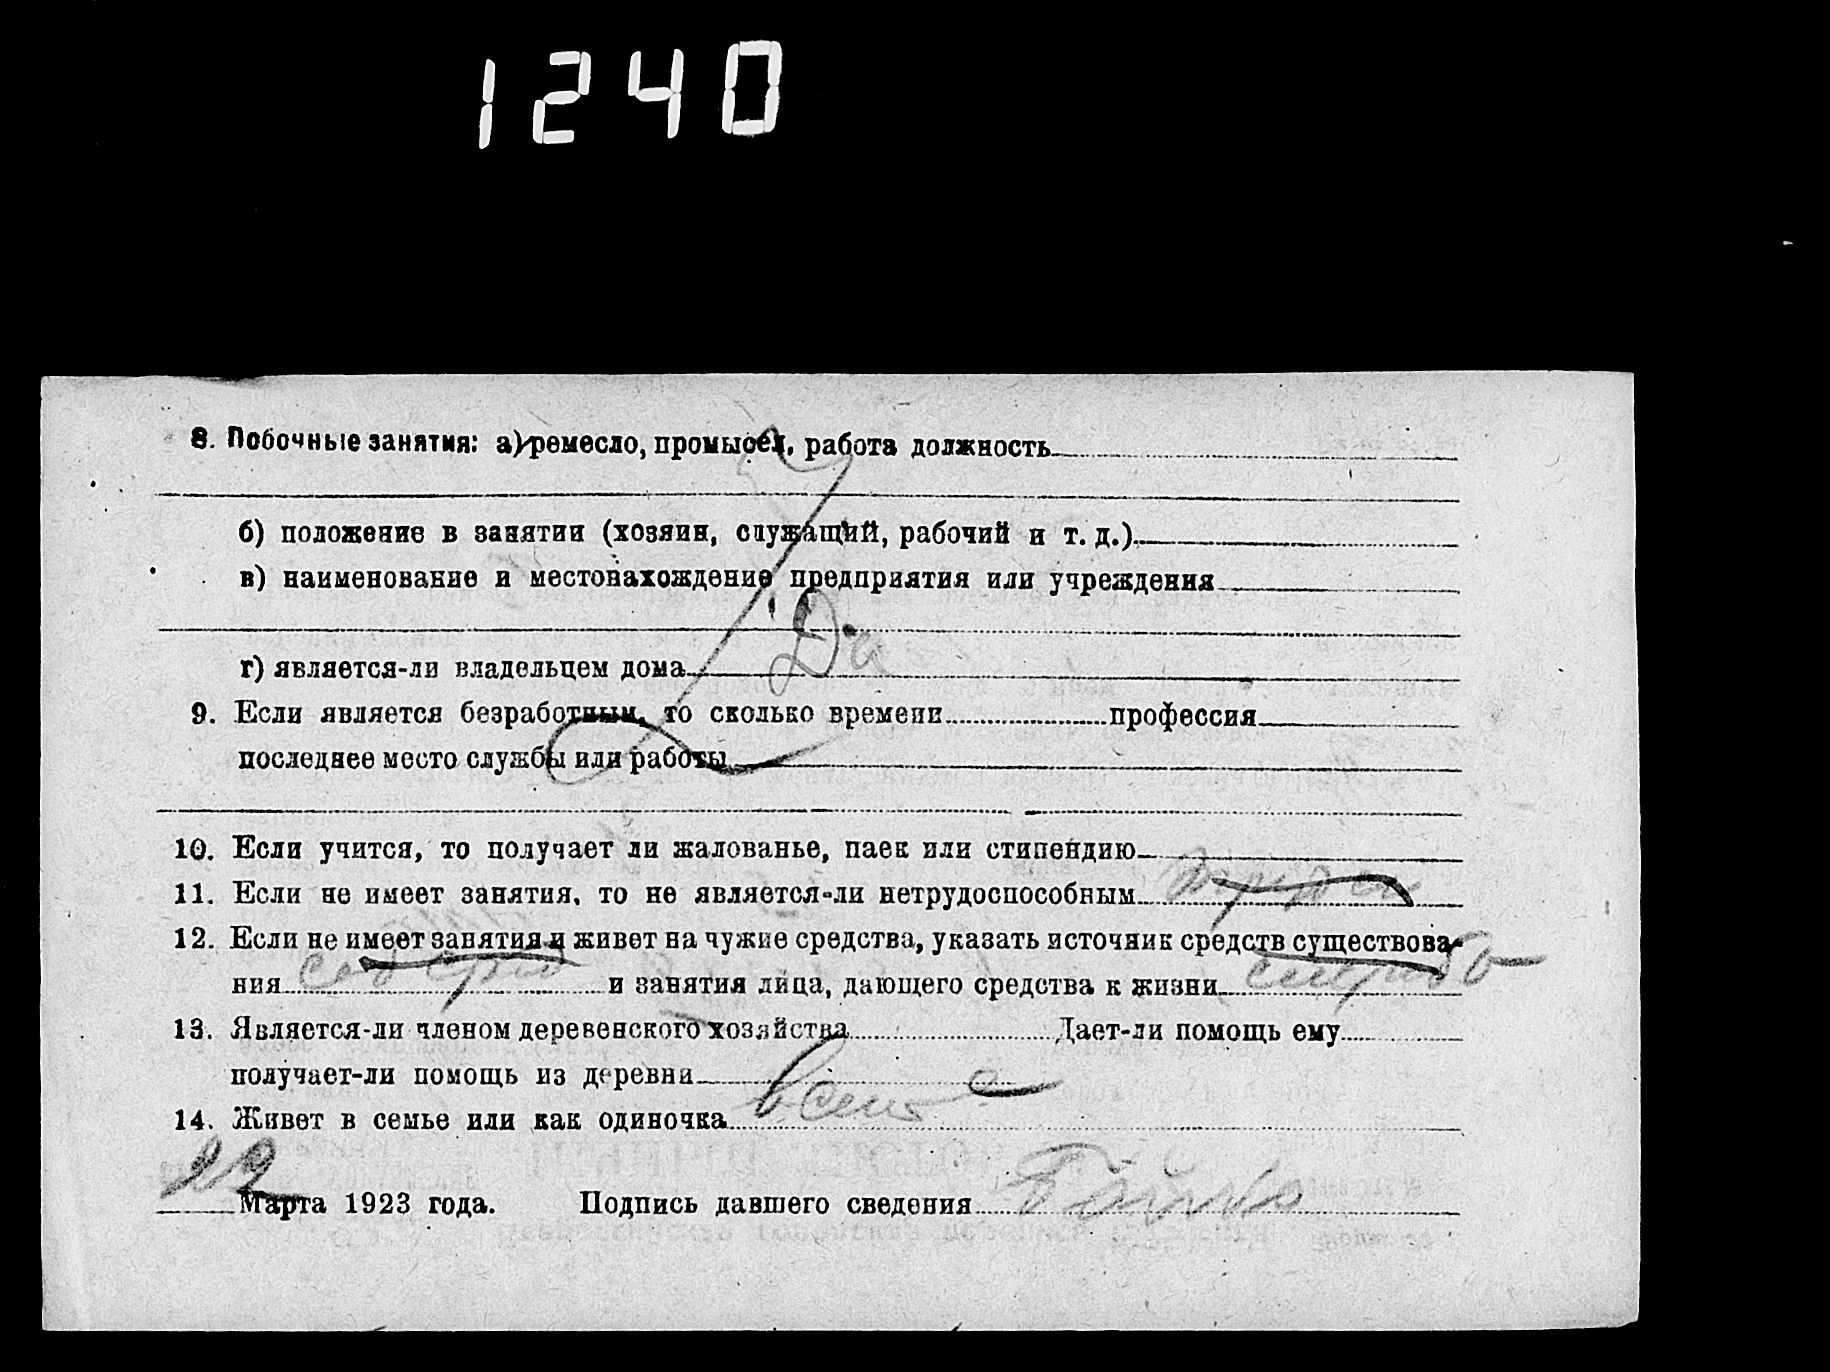 1240
8. Побочные занятия: а) ремесло, промысел, работа должность
б) положение в занятии (хозяин, служащий, рабочий и т. д.)
в) наименование и местонахождение предприятия или учреждения
г) является-ли владельцем дома Да
9. Если является безработным, то сколько времени профессия
последнее место службы или работы
10. Если учится, то получает ли жалованье, паек или стипендию
11. Если не имеет занятия, то не является-ли нетрудоспособным
12. Если не имеет занятия и живет на чужие средства, указать источник средств существова-
ния и занятия лица, дающего средства к жизни
13. Является-ли членом деревенского хозяйства Дает-ли помощь ему
получает-ли помощь из деревни
14. Живет в семье или как одиночка
22 Марта 1923 года. Подпись давшего сведения